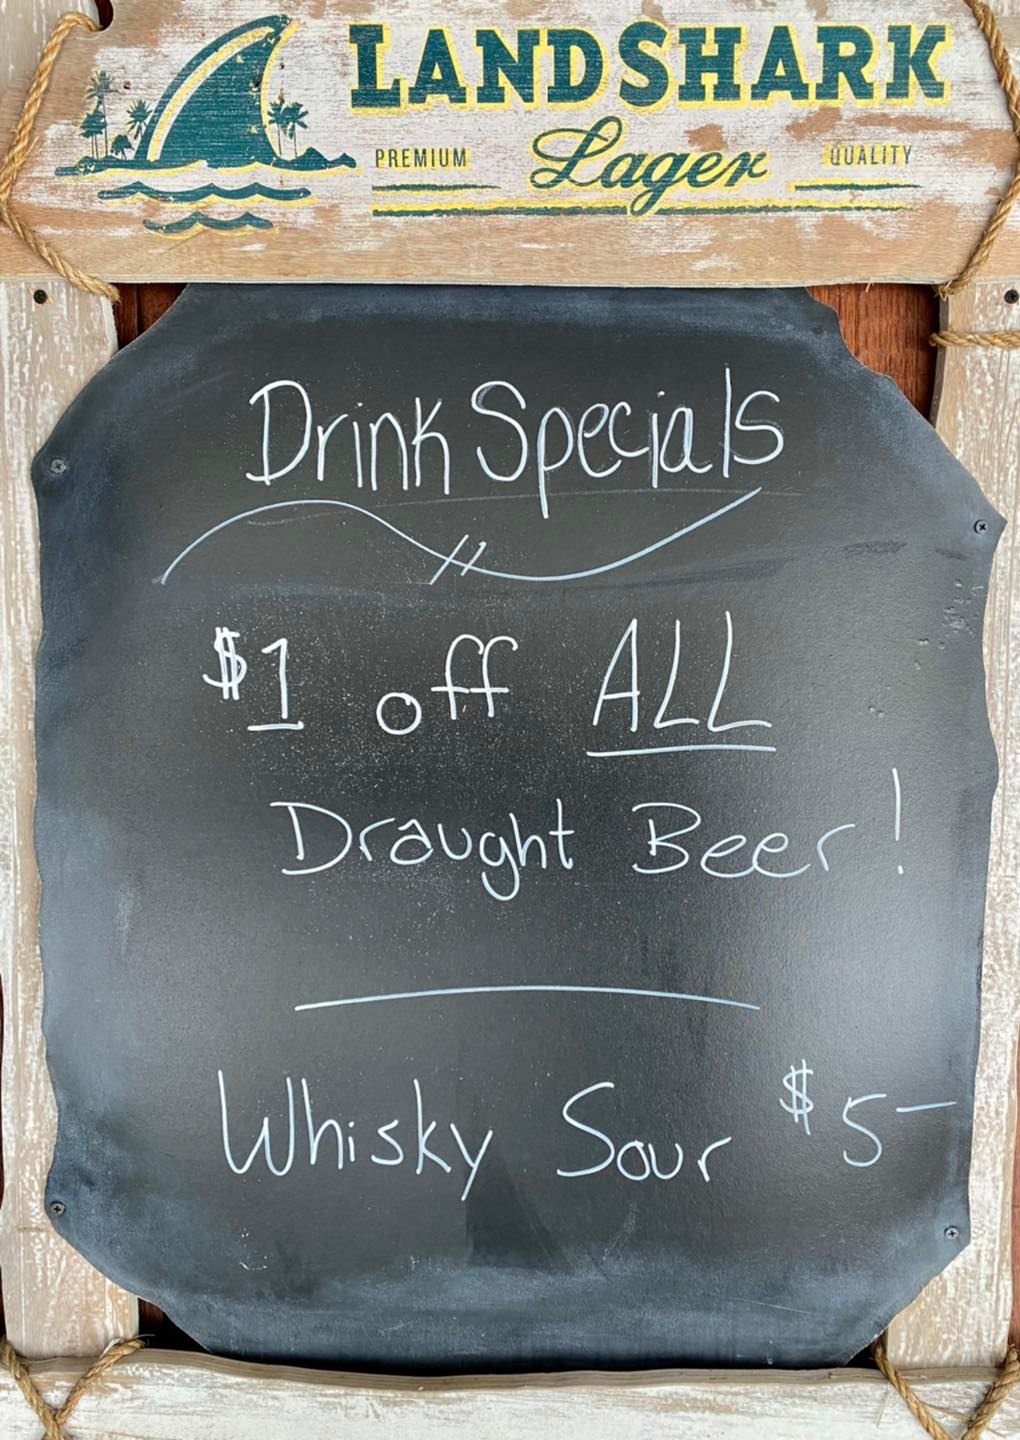 LANDSHARK
PREMIUM Lager QUALITY
Drink Specials
$1 off ALL
Draught Beer!
Whisky Sour $5-